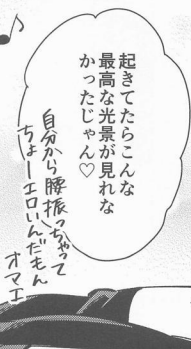 起きてたらこんな
最高な光景が見れな
かったじゃん♡
自分から腰振っちゃって
ちょーエロいんだもん
オマエ